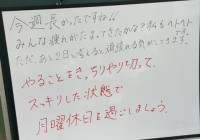 今週長かったですね!!
みんな疲れがたまってきたかな?私もヘトヘト
ただ、あと2日と考えると頑張れる気がしてきます。
やることをきっちりやり切って、
スッキリした状態で
月曜休日を過ごしましょう。